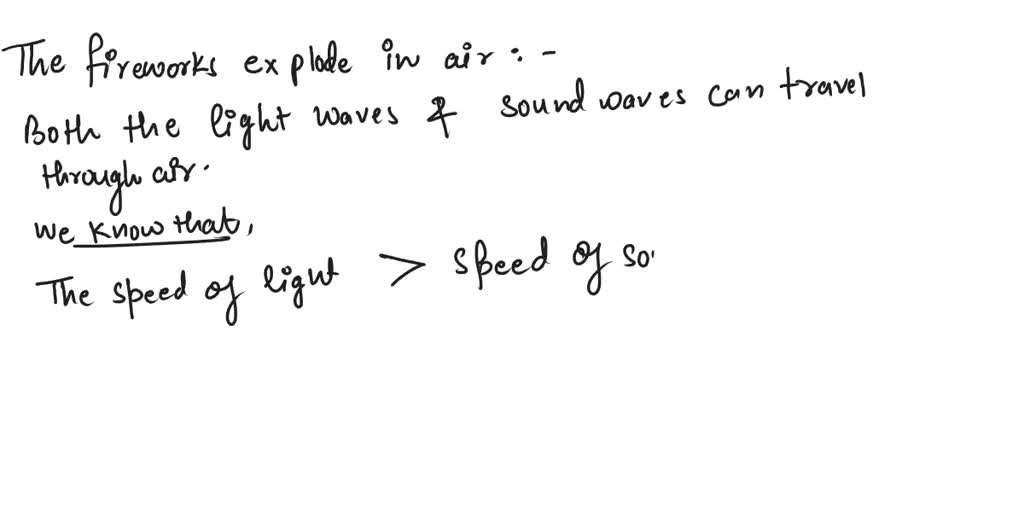 The fireworks explode in air : -
Both the light waves & sound waves can travel
through air.
We know that,
The speed of light > speed of so